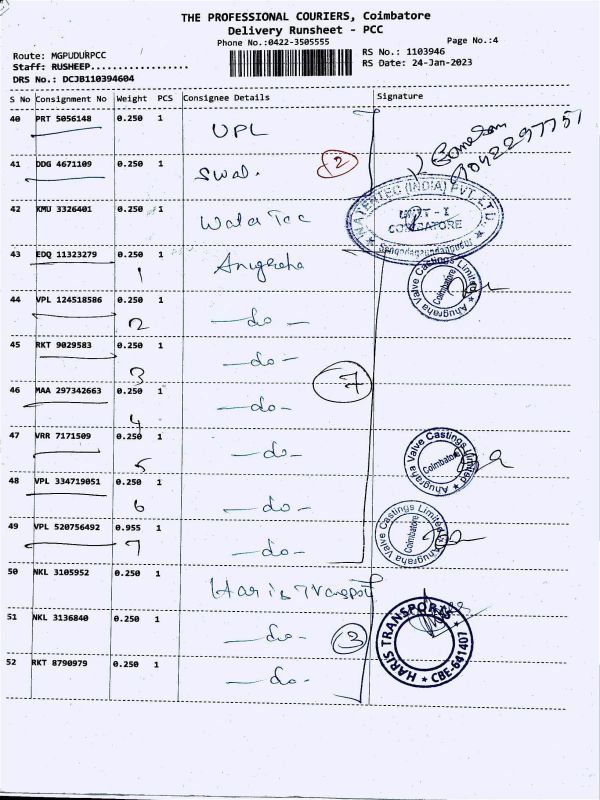 THE PROFESSIONAL COURIERS, Coimbatore
Delivery Runsheet - PCC
Phone No.:0422-3505555
Page No.:4
Route: MGPUDURPCC
RS No.: 1103946
Staff: RUSHEEP...................
RS Date: 24-Jan-2023
DRS No.: DCJB110394604
S No Consignment No Weight PCS Consignee Details Signature
40 PRT 5056148 0.250 1 UPL
41 DDG 4671109 0.250 1 Swal. 2
42 KMU 3326401 0.250 1 Water Tec
WATERTEC (INDIA) PVT. LTD.
UNIT - I
COIMBATORE
43 EDQ 11323279 0.250 1 Anugraha
1
Anugraha Valve Castings Limited
Coimbatore
44 VPL 124518586 0.250 1 —do—
2
45 RKT 9029583 0.250 1 —do—
3
7
46 MAA 297342663 0.250 1 —do—
4
47 VRR 7171509 0.250 1 —do—
5
Anugraha Valve Castings Limited
Coimbatore
48 VPL 334719051 0.250 1 —do—
6
49 VPL 520756492 0.955 1 —do—
7
Anugraha Valve Castings Limited
Coimbatore
50 NKL 3105952 0.250 1 Haris Transport
51 NKL 3136840 0.250 1 —do—
3
HARIS TRANSPORTS
CBE-641407
52 RKT 8790979 0.250 1 —do—